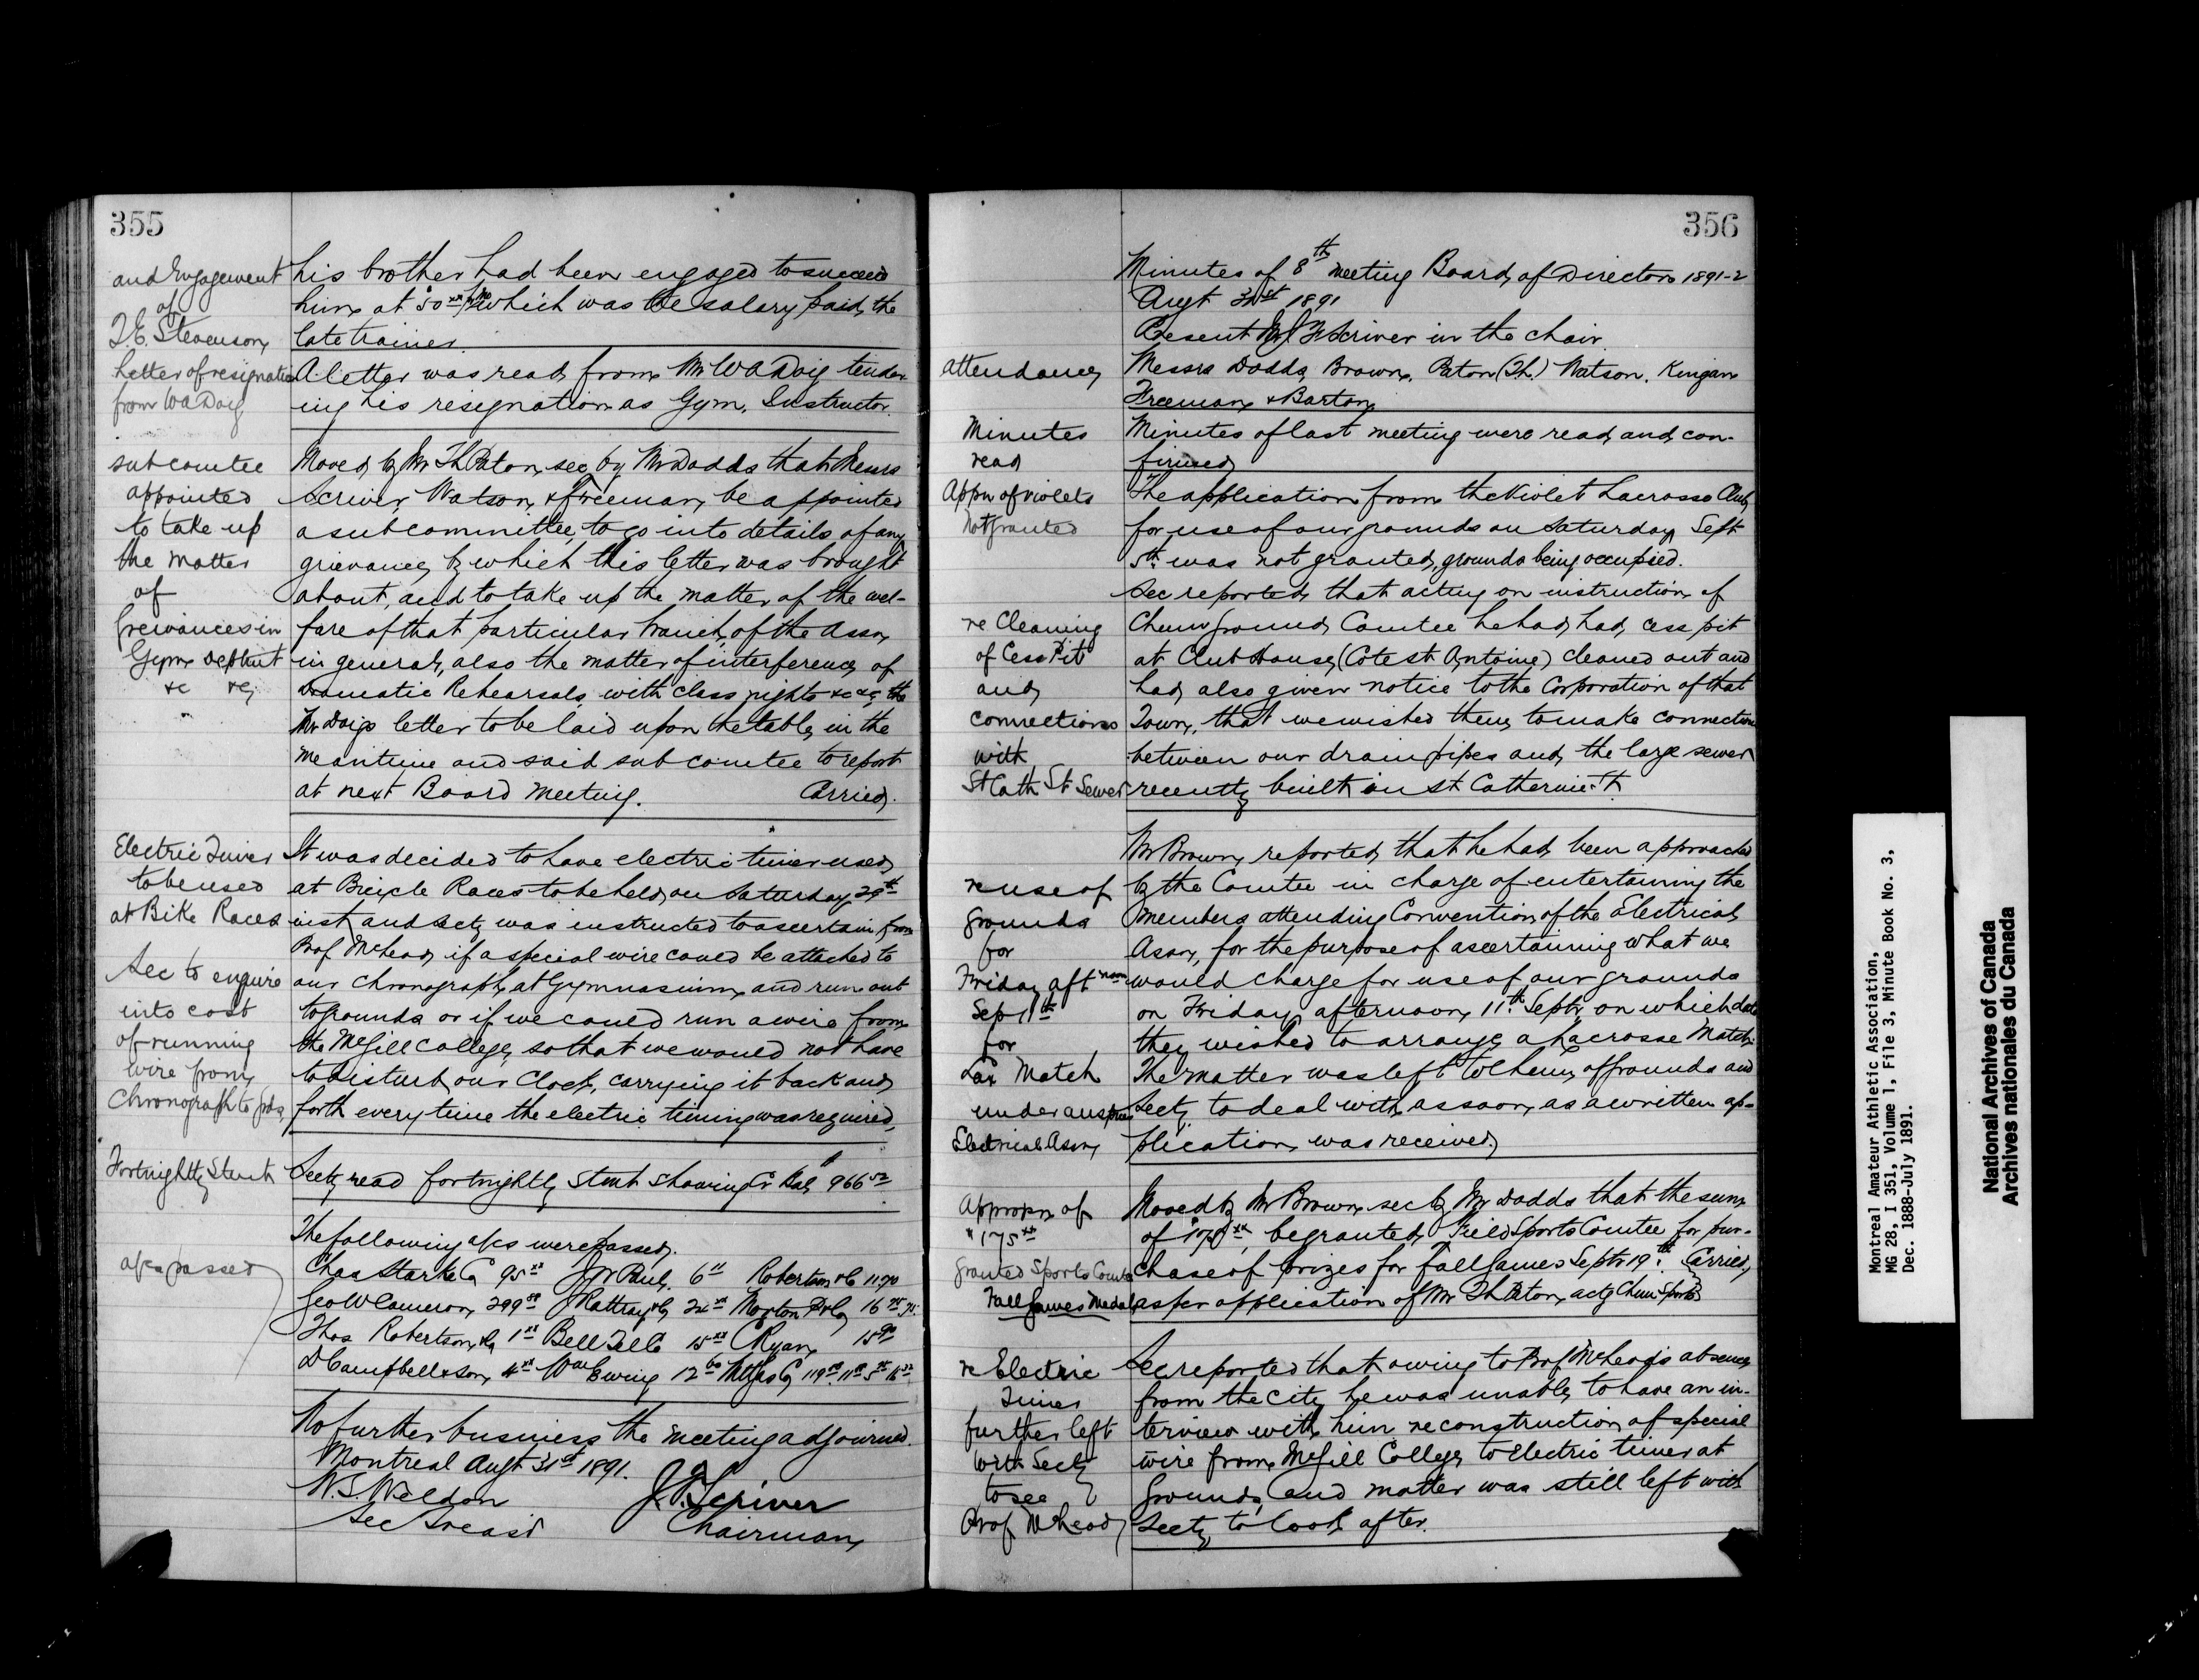 355
and Engagement
of
T.E. Stevenson
Letter of resignation
from WA Doig
subcomtee
appointed
to take up
the matter
of
greivances in
Gym Deptmt
&c &c
Electric Timer
to be used
at Bike Races
Sec to enquire
into cost
of running
wire from
Chronograph to grds
Fortnightly Stmt
a/cs passed
his brother had been engaged to succeed
him at $50xx which was the salary paid the
late trainer.
A letter was read from Mr WA Doig tender-
ing his resignation as Gym. Instructor.
Moved by Mr Th Paton, sec by Mr Dodds that Messrs
Scriver, Watson, & Freeman, be appointed
a subcommittee, to go into details of any
grievance, by which this letter was brought
about, and to take up the matter of the wel-
fare of that particular branch of the Assn
in general, also the matter of interference of
Dramatic Rehearsals with class nights &c &c, the
Mr Doigs letter to be laid upon the table, in the
meantime and said sub comtee to report
at next Board Meeting. Carried.
It was decided to have electric timer used
at Bicycle Races to be held on Saturday 29th
inst and Secty was instructed to ascertain from
Prof McLeod if a special wire could be attached to
our Chronograph, at Gymnasium, and run out
to grounds or if we could run a wire from
the McGill College, so that we would not have
to disturb our Clock, carrying it back and
forth every time the electric timing was required.
Secty read fortnightly Stmt showing Cr Bal $966 52
The following a/cs were passed.
Chas Starke Co 95xx J W Paul, 6 Robertson & Co 11.70
Geo W Cameron, 299 J Rattray & Co 24xx Morton P & Co 16
Thos Robertson & Co 1xx Bell Tel Co 15xx C Ryan 15
D Campbell & Son, 4xx Wm Ewing 12 60 Mtl Gas Co 119
No further business the meeting adjourned.
Montreal Augt 31st 1891.
W.S. Weldon J.F. Scriver
Sec Treasr Chairman
356
attendance
Minutes
read
Appn of Violets
Not granted
re Cleaning
of Cess Pit
and
connections
with
St Cath St Sewer
re use of
grounds
for
Friday aft noon
Sept 11th
for
Lax Match
under auspices
Electrical Assn
Appropn of
$175xx
granted Sports Comtee
Fall Games Medals
re Electric
Timer
further left
with Secty
to see
Prof McLeod
Minutes of 8th Meeting Board of Directors 1891-2
Augt 31st 1891
Present Mr J F Scriver in the chair.
Messrs Dodds, Brown, Paton (Th.) Watson, Kingan
Freeman & Barton
Minutes of last meeting were read and con-
firmed
The application from the Violet Lacrosse Club
for use of our grounds on Saturday Sept
5th was not granted, grounds being occupied.
Sec reported that acting on instruction of
Chmn ground Comtee he had had cess pit
at Club House (Cote st Antoine) cleaned out and
had also given notice to the Corporation of that
Town, that we wished them to make connection
between our drain pipes and the large sewer
recently built in St Catherine St.
Mr Brown reported that he had been approached
by the Comtee in charge of entertaining the
members attending Convention of the Electrical
Assn, for the purpose of ascertaining what we
would charge for use of our grounds
on Friday afternoon 11th Septr, on which date
they wished to arrange a Lacrosse Match.
The matter was left to Chmn of grounds and
Secty to deal with as soon as a written ap-
plication was received.
Moved by Mr Brown, sec by Mr Dodds that the sum
of $175xx be granted Field Sports Comtee for pur-
chase of prizes for Fall Games Septr 19th. Carried,
as per application of Mr Th Paton, actg Chmn Sports
Sec reported that owing to Prof McLeod's absence
from the city he was unable to have an in-
terview with him re construction of special
wire from McGill College to Electric timer at
Grounds, and matter was still left with
Secty to look after.
Montreal Amateur Athletic Association,
MG 28, I 351, Volume 1, File 3, Minute Book No. 3,
Dec. 1888-July 1891.
National Archives of Canada
Archives nationales du Canada